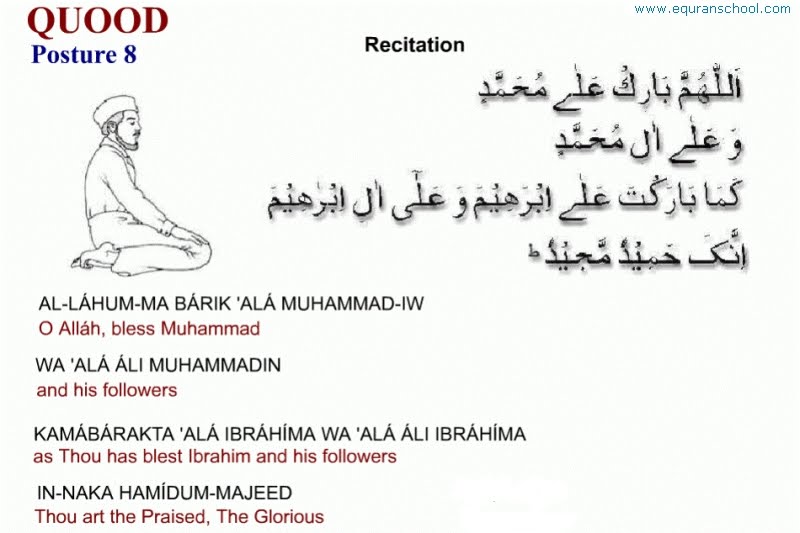 QUOOD
www.equranschool.com
Posture 8
Recitation
اَللّٰهُمَّ بَارِكْ عَلٰے مُحَمَّدٍ
وَ عَلٰے اٰلِ مُحَمَّدٍ
كَمَا بَارَكْتَ عَلٰے اِبْرٰهِيْمَ وَ عَلٰٓى اٰلِ اِبْرٰهِيْمَ
اِنَّکَ حَمِيْدٌ مَّجِيْدٌ ؕ
AL-LÁHUM-MA BÁRIK 'ALÁ MUHAMMAD-IW
O Alláh, bless Muhammad
WA 'ALÁ ÁLI MUHAMMADIN
and his followers
KAMÁBÁRAKTA 'ALÁ IBRÁHÍMA WA 'ALÁ ÁLI IBRÁHÍMA
as Thou has blest Ibrahim and his followers
IN-NAKA HAMÍDUM-MAJEED
Thou art the Praised, The Glorious